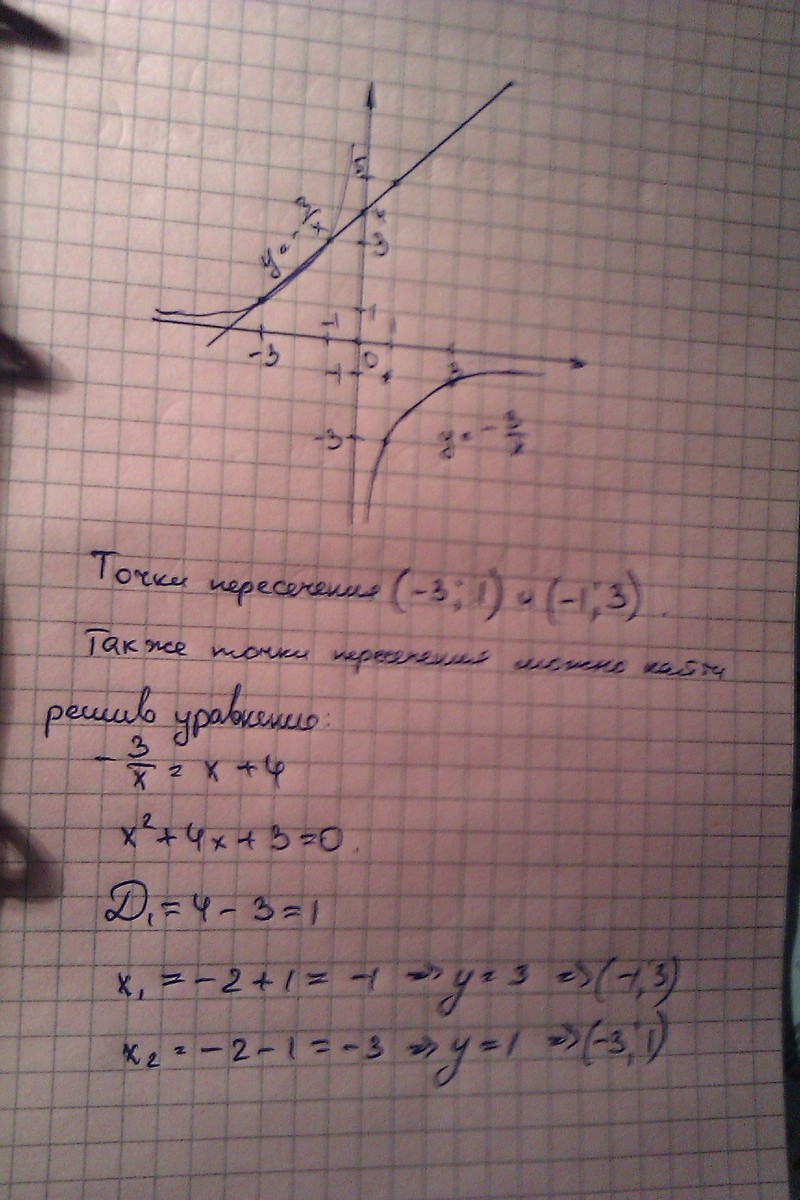 5
y = -3/x
3
1
-1
1
-3
0
-1
3
-3
y = -3/x
Точки пересечения (-3; 1) и (-1; 3).
Также точки пересечения можно найти
решив уравнению:
-3/x = x + 4
x² + 4x + 3 = 0.
D₁ = 4 - 3 = 1
x₁ = -2 + 1 = -1 => y = 3 => (-1; 3)
x₂ = -2 - 1 = -3 => y = 1 => (-3; 1)